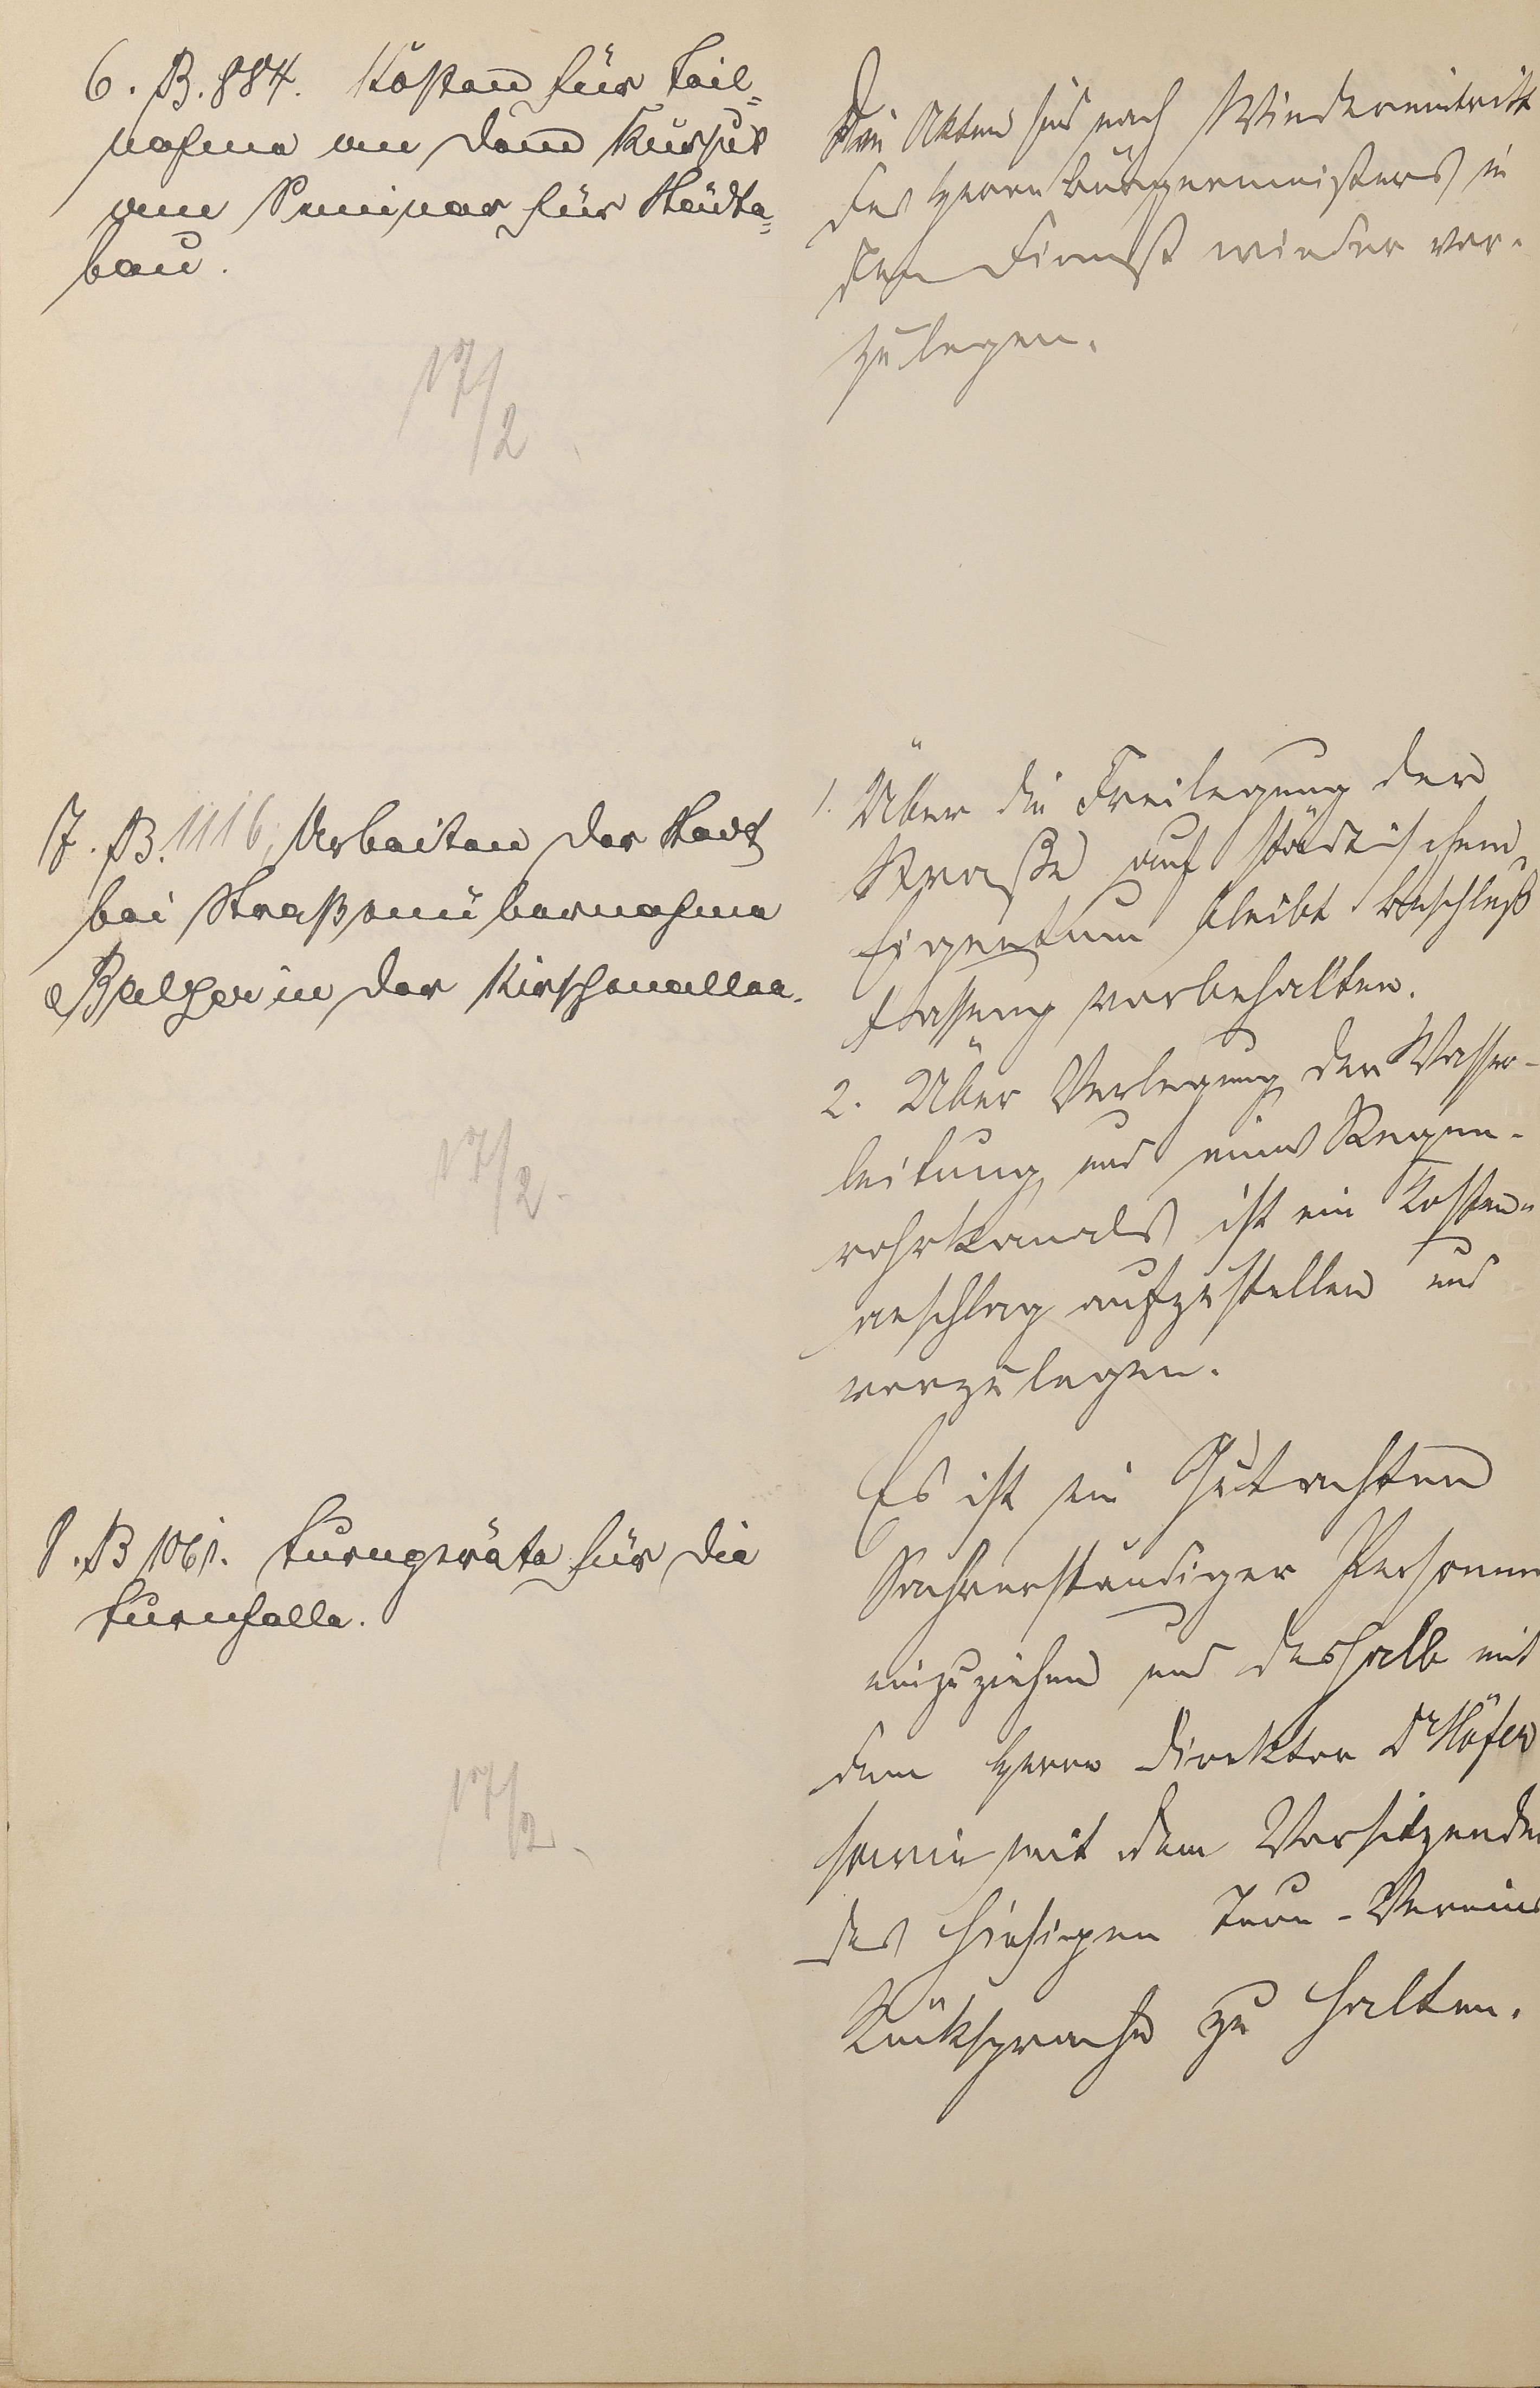 6. B. 884. Kosten für Teil=
nahme an dem Kursus
am Seminar für Städte=
bau.
17/2
Die Akten sind nach Wiedereintritt
des Herrn Bürgermeisters in
den Dienst wieder vor-
zulegen.
7. B. 1116. Arbeiten der Stadt
bei Straßenübernahme
Balzer in der Kirschenallee.
17/2.
1. Über die Freilegung der
Straße auf städtischem
Eigentum bleibt Beschluß
fassung vorbehalten.
2. Über Verlegung der Wasser-
leitung und eines Regen-
rohrkanals ist ein Kosten-
anschlag aufzustellen und
vorzulegen.
8. B 1061. Turngeräte für die
Turnhalle.
17/2.
Es ist ein Gutachten
Sachverständiger Personen
einzuziehen und deshalb mit
dem Herrn Direktor Dr Höfer
sowie mit dem Vorsitzenden
des hiesigen Turn-Vereins
Rücksprache zu halten.